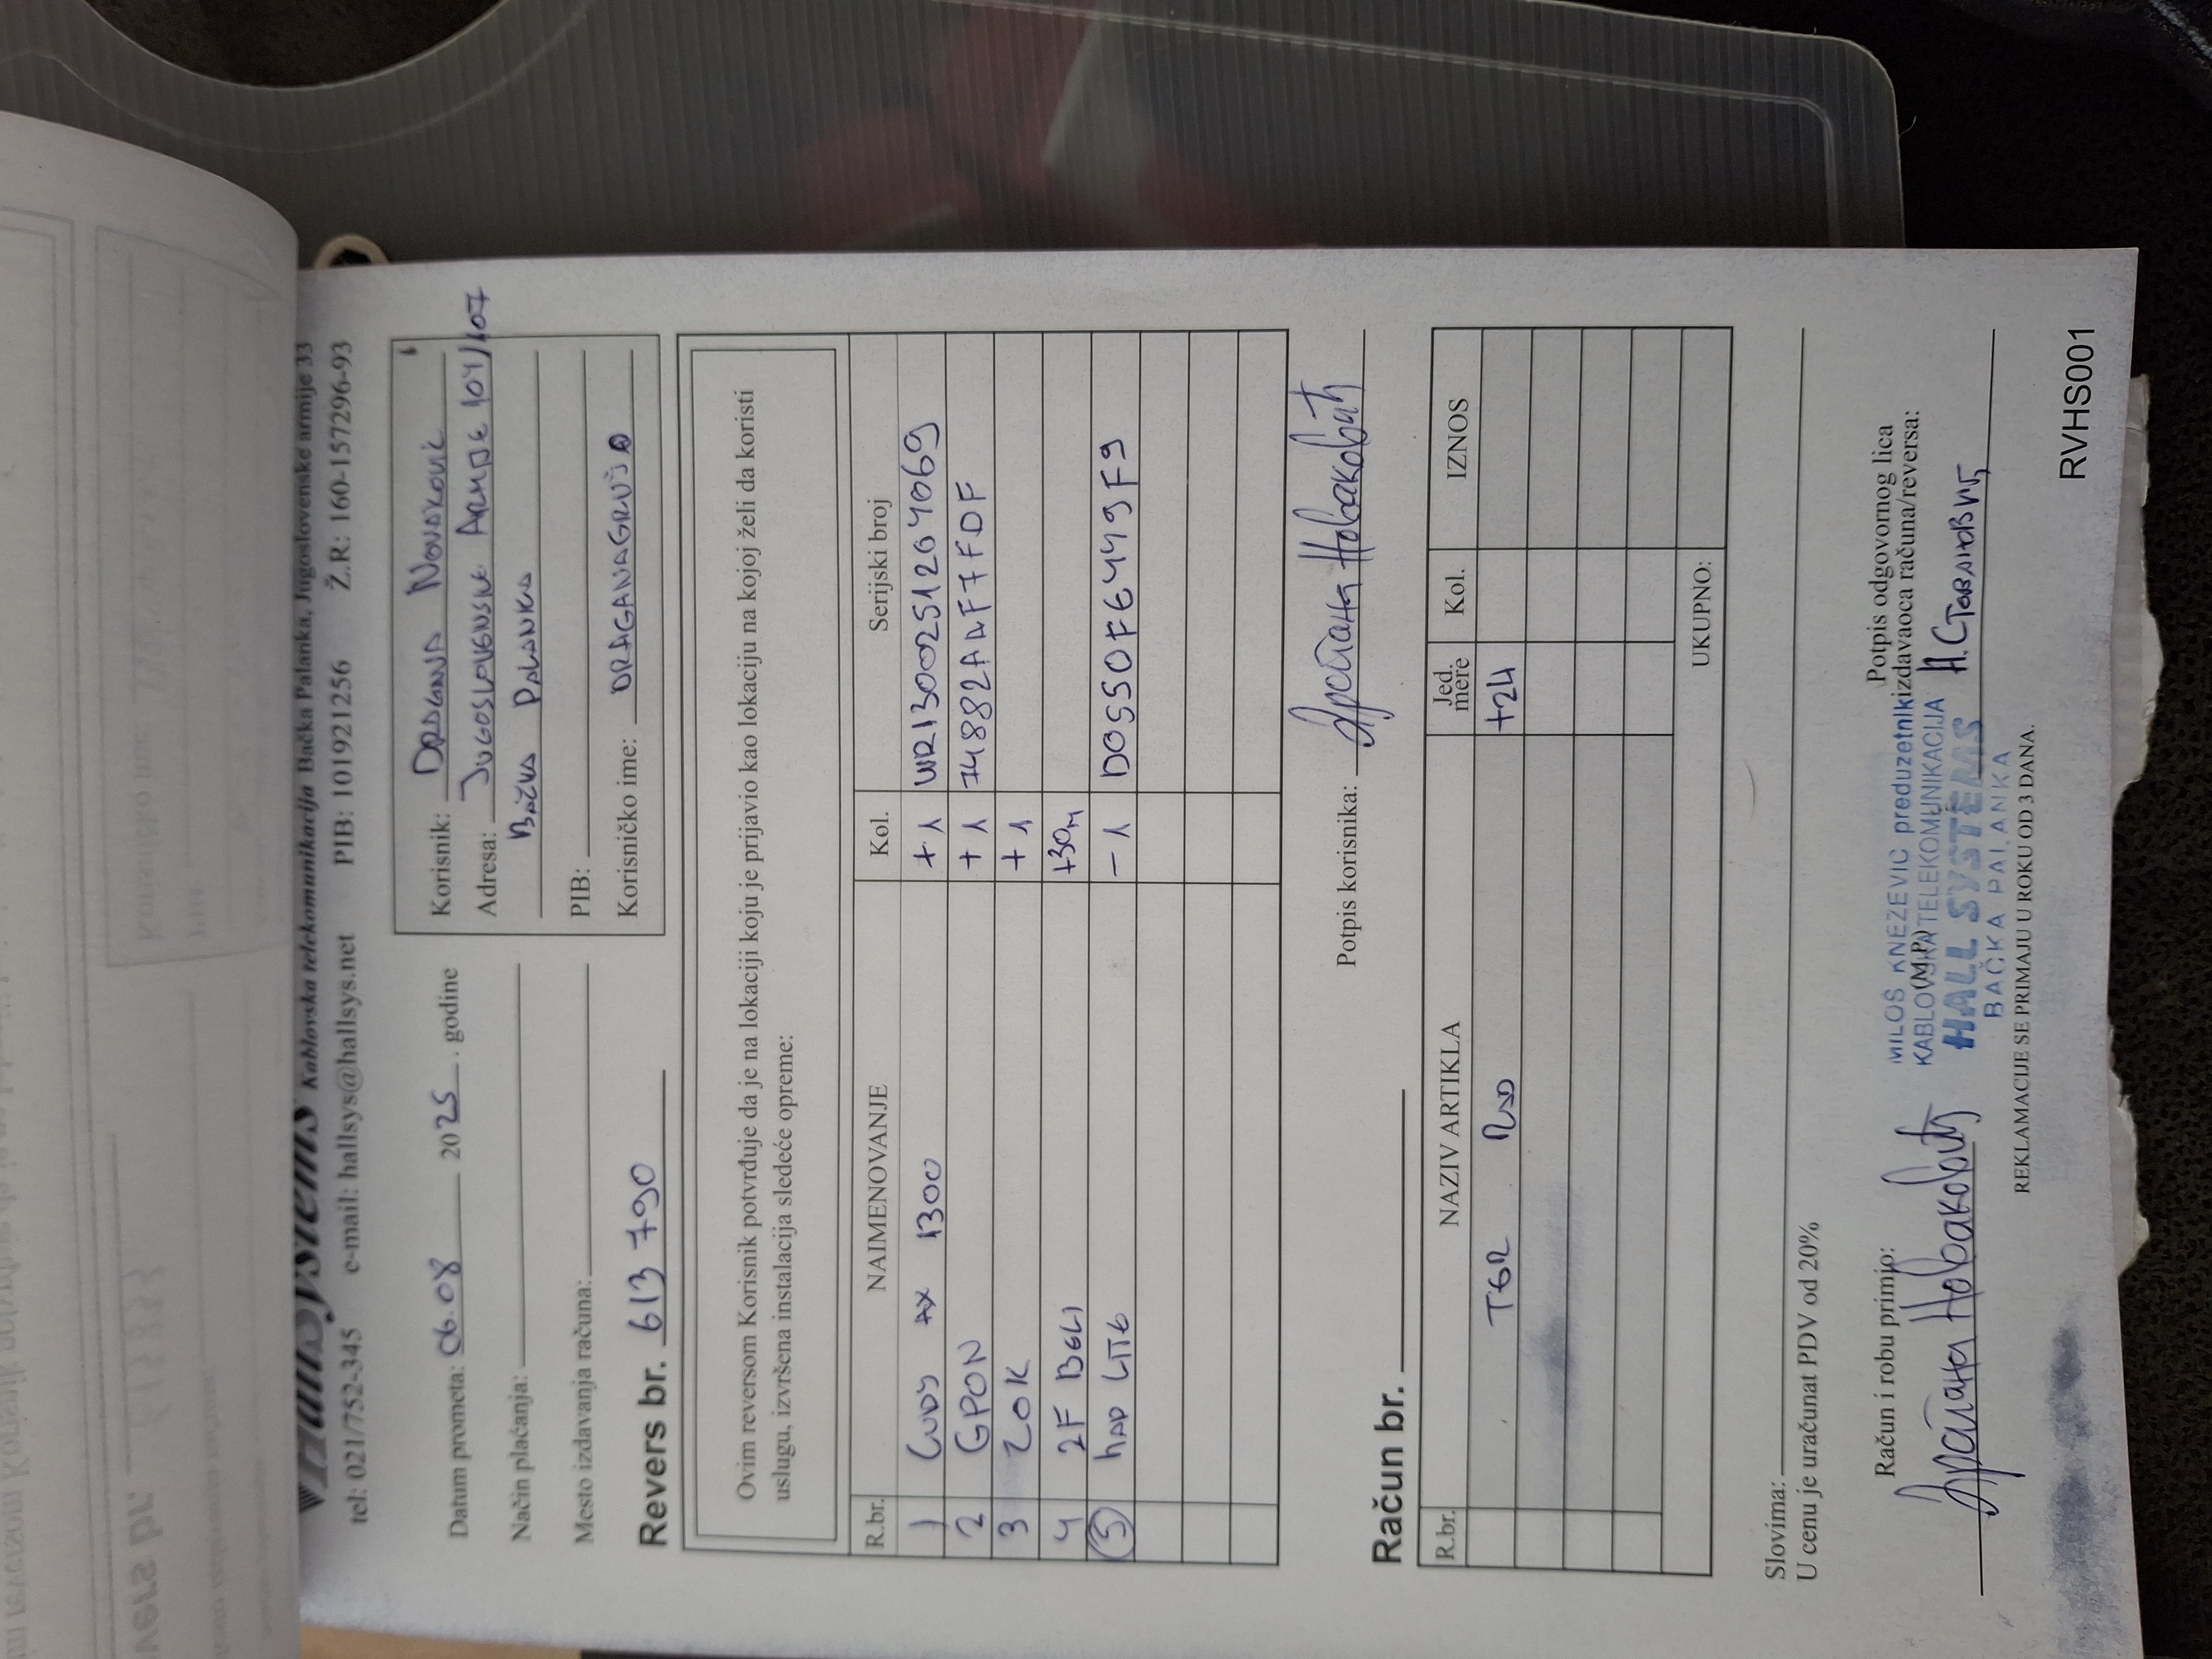 HallSystems Kablovska telekomunikacija Bačka Palanka, Jugoslovenske armije 33
tel: 021/752-345 e-mail: hallsys@hallsys.net PIB: 101921256 Ž.R: 160-157296-93
Datum prometa: 06.08 2025. godine
Način plaćanja:
Mesto izdavanja računa:
Revers br. 613 790
Korisnik: DRAGANA NOVAKOVIĆ
Adresa: JUGOSLOVENSKE ARMIJE 104/107
BAČKA PALANKA
PIB:
Korisničko ime: DRAGANAGRUJA
Ovim reversom Korisnik potvrđuje da je na lokaciji koju je prijavio kao lokaciju na kojoj želi da koristi
uslugu, izvršena instalacija sledeće opreme:
R.br. NAIMENOVANJE Kol. Serijski broj
1 CUDY AX 1300 +1 WR1300251204069
2 GPON +1 74882AAF7FDF
3 ZOK +1
4 2F BELI +30m
5 hAP LITE -1 D0550FE449F9
Potpis korisnika: Драгана Новаковић
Račun br.
R.br. NAZIV ARTIKLA Jed. mere Kol. IZNOS
TGR RAD +24
UKUPNO:
Slovima:
U cenu je uračunat PDV od 20%
Račun i robu primio:
Драгана Новаковић
Potpis odgovornog lica
izdavaoca računa/reversa:
(M.P.)
MILOŠ KNEŽEVIĆ preduzetnik
KABLOVSKA TELEKOMUNIKACIJA
HALL SYSTEMS
BAČKA PALANKA
REKLAMACIJE SE PRIMAJU U ROKU OD 3 DANA.
RVHS001